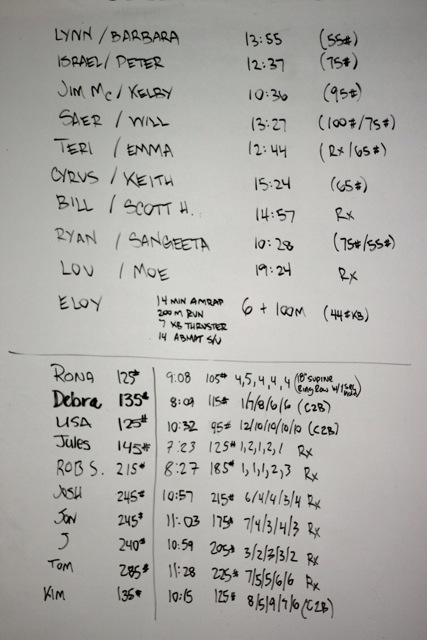 LYNN / BARBARA 13:55 (55#)
ISRAEL / PETER 12:37 (75#)
JIM Mc / KELBY 10:36 (95#)
SAER / WILL 13:27 (100#/75#)
TERI / EMMA 12:44 (Rx/65#)
CYRUS / KEITH 15:24 (65#)
BILL / SCOTT H. 14:57 Rx
RYAN / SANGEETA 10:28 (75#/55#)
LOU / MOE 19:24 Rx
ELOY 14 MIN AMRAP 6 + 100M (44#KB)
200 M RUN
7 KB THRUSTER
14 ABMAT S/U
RONA 125# 9:08 105# 4,5,4,4,4 (18" SUPINE
Ring Row
Debra 135# 8:09 115# 1/7/8/6/6 (C2B)
LISA 125# 10:32 95# 12/10/10/10/10 (C2B)
Jules 145# 7:23 125# 1,2,1,2,1 Rx
ROB S. 215# 8:27 185# 1,1,1,2,3 Rx
JOSH 245# 10:57 215# 6/4/4/3/4 Rx
Jon 245# 11:03 175# 7/4/3/4/3 Rx
J 240# 10:59 205# 3/2/3/3/2 Rx
Tom 285# 11:28 225# 7/5/5/6/6 Rx
Kim 135# 10:15 125# 8/5/9/7/6 (C2B)